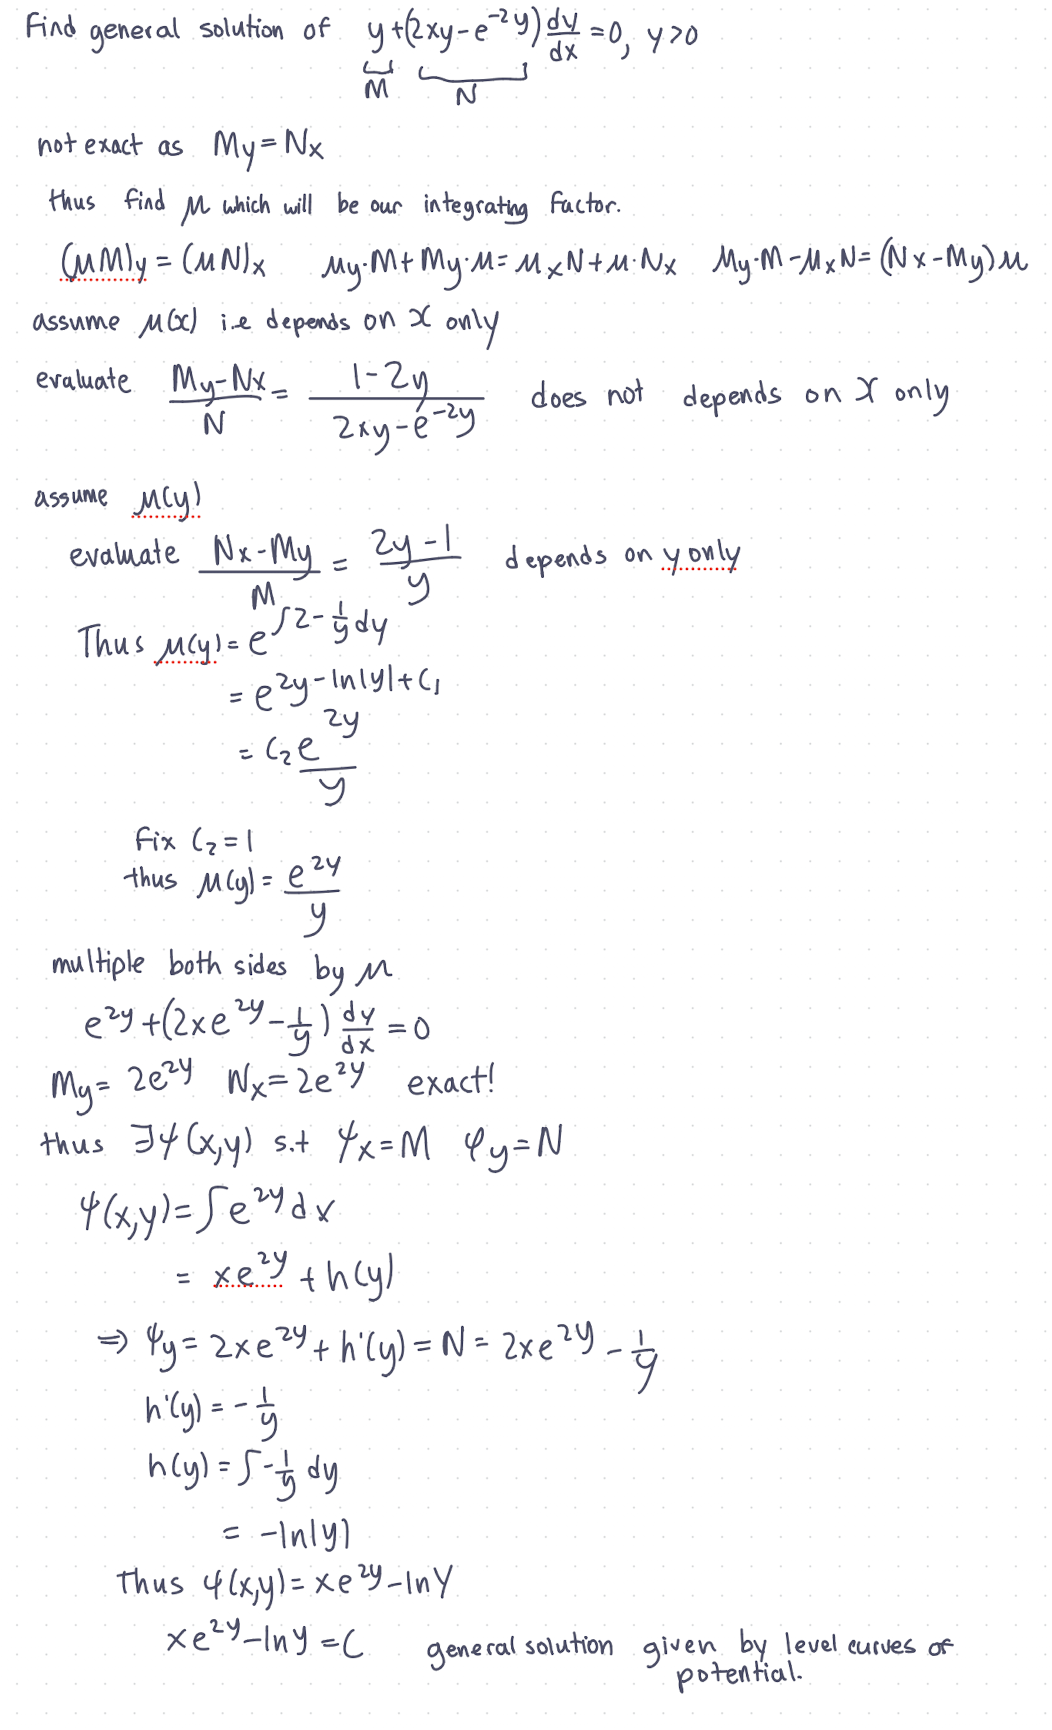 Find general solution of y+(2xy-e^{-2y}) dy/dx =0, y>0
M N
not exact as My=Nx
thus find μ which will be our integrating factor.
(μM)y = (μN)x μy·M+My·μ=μxN+μ·Nx μy·M-μxN=(Nx-My)μ
assume μ(x) i.e depends on x only
evaluate (My-Nx)/N = (1-2y)/(2xy-e^{-2y}) does not depends on x only
assume μ(y)
evaluate (Nx-My)/M = (2y-1)/y depends on y only
Thus μ(y)=e^{∫2-1/y dy}
= e^{2y-ln|y|+C₁}
= C₂e^{2y}/y
fix C₂=1
thus μ(y)=e^{2y}/y
multiple both sides by μ
e^{2y}+(2xe^{2y}-1/y) dy/dx =0
My= 2e^{2y} Nx=2e^{2y} exact!
thus ∃ψ(x,y) s.t ψx=M φy=N
ψ(x,y)=∫e^{2y}dx
= xe^{2y}+h(y)
⇒ ψy=2xe^{2y}+h'(y)=N=2xe^{2y}-1/y
h'(y)=-1/y
h(y)=∫-1/y dy
= -ln|y|
Thus ψ(x,y)=xe^{2y}-lny
xe^{2y}-lny=C general solution given by level curves of
potential.